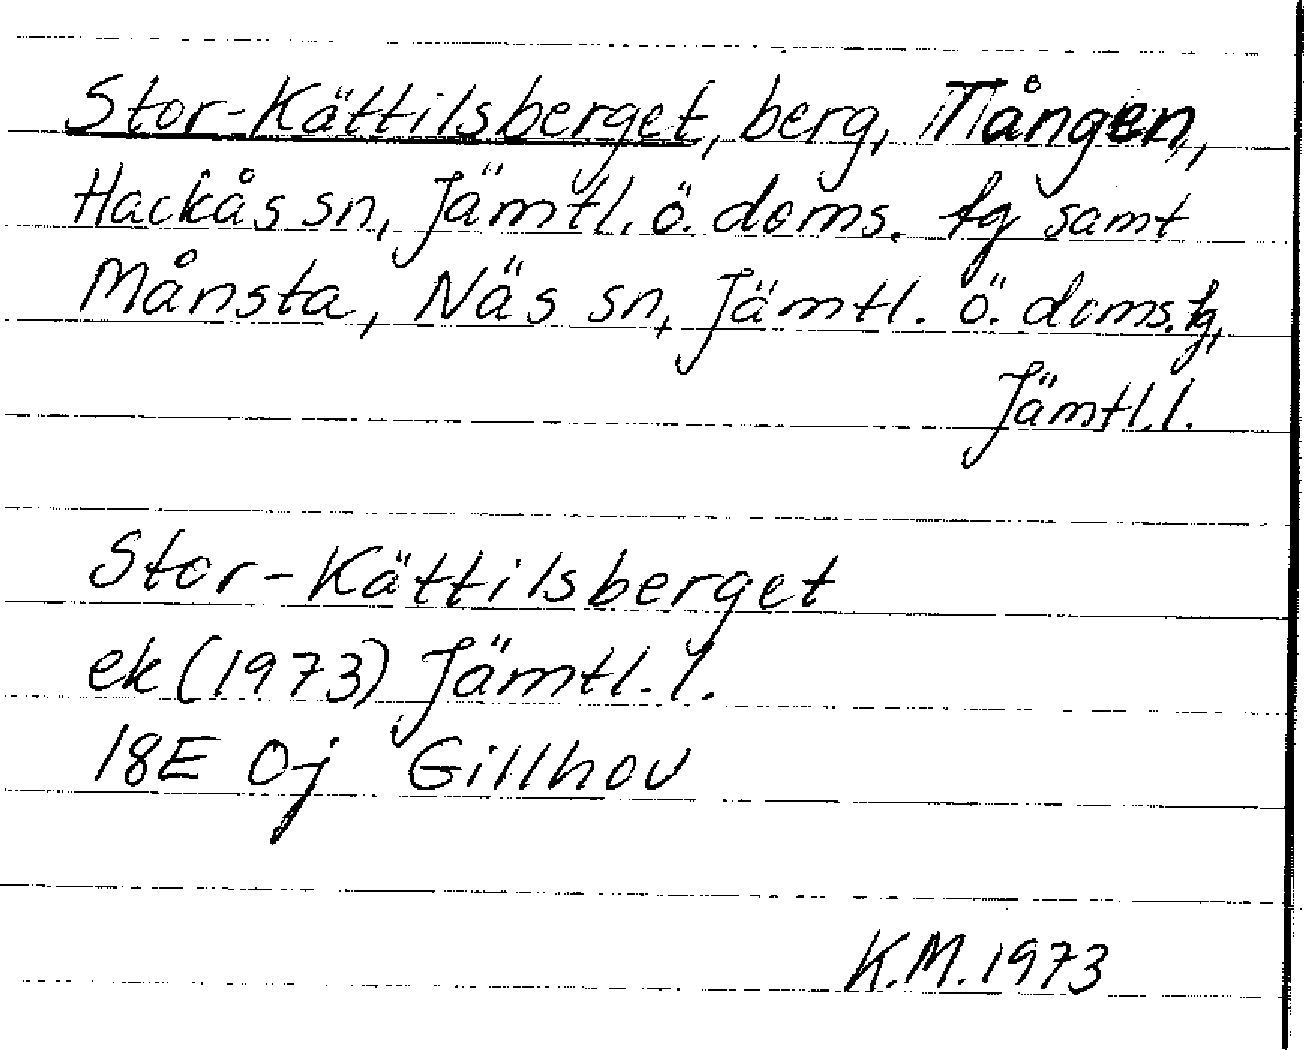 Stor-Kättilsberget, berg, Tången,
Hackås sn, Jämtl. ö. doms. tg samt
Månsta, Näs sn, Jämtl. ö. doms. tg,
Jämtl. l.
Stor-Kättilsberget
ek (1973) Jämtl. l.
18E 0j Gillhov
K.M. 1973